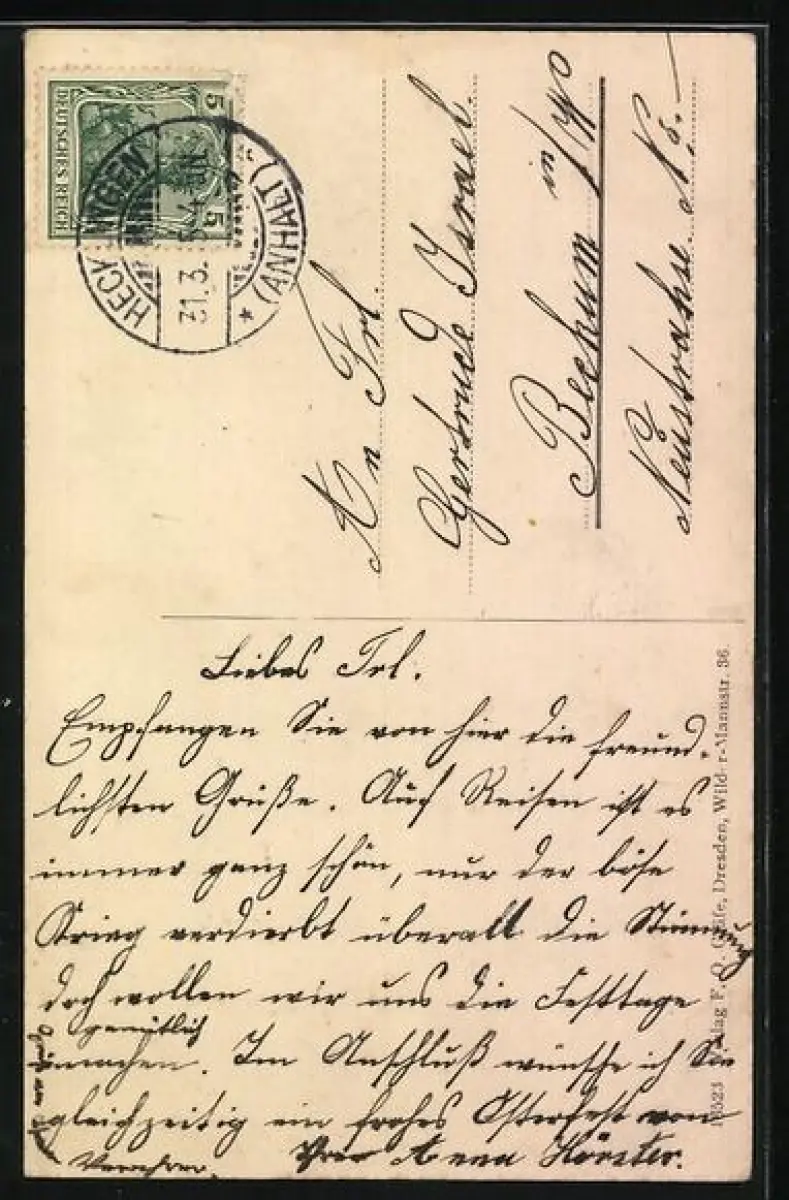 DEUTSCHES REICH
5 5
HECKLINGEN
(ANHALT)
31.3.
An Frl.
Gertrude Israel
Bochum in
Neustrahse No.
Liebes Frl.
Empfangen Sie von hier die freund-
lichsten Grüße. Auf Reisen ist es
immer ganz schön, nur der böse
Krieg verdierbt überall die Stimmung
doch wollen wir uns die Festtage
gemütlich
machen. Im Anschluß wünsche ich Sie
gleichzeitig ein frohes Osterfest von
Ihrer Anna Hörster.
13523 Verlag F. O. Dresden, Wilder-Mannstr. 36.